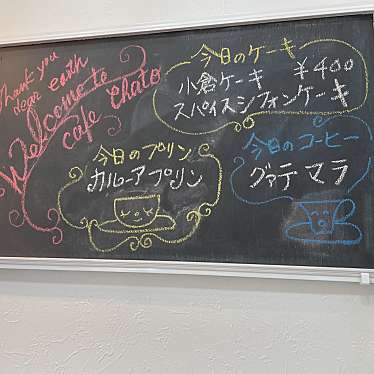 Thank you
dear earth
Welcome to
cafe Chato
今日のケーキ
小倉ケーキ ¥400
スパイスシフォンケーキ
今日のプリン
カルーアプリン
今日のコーヒー
グァテマラ